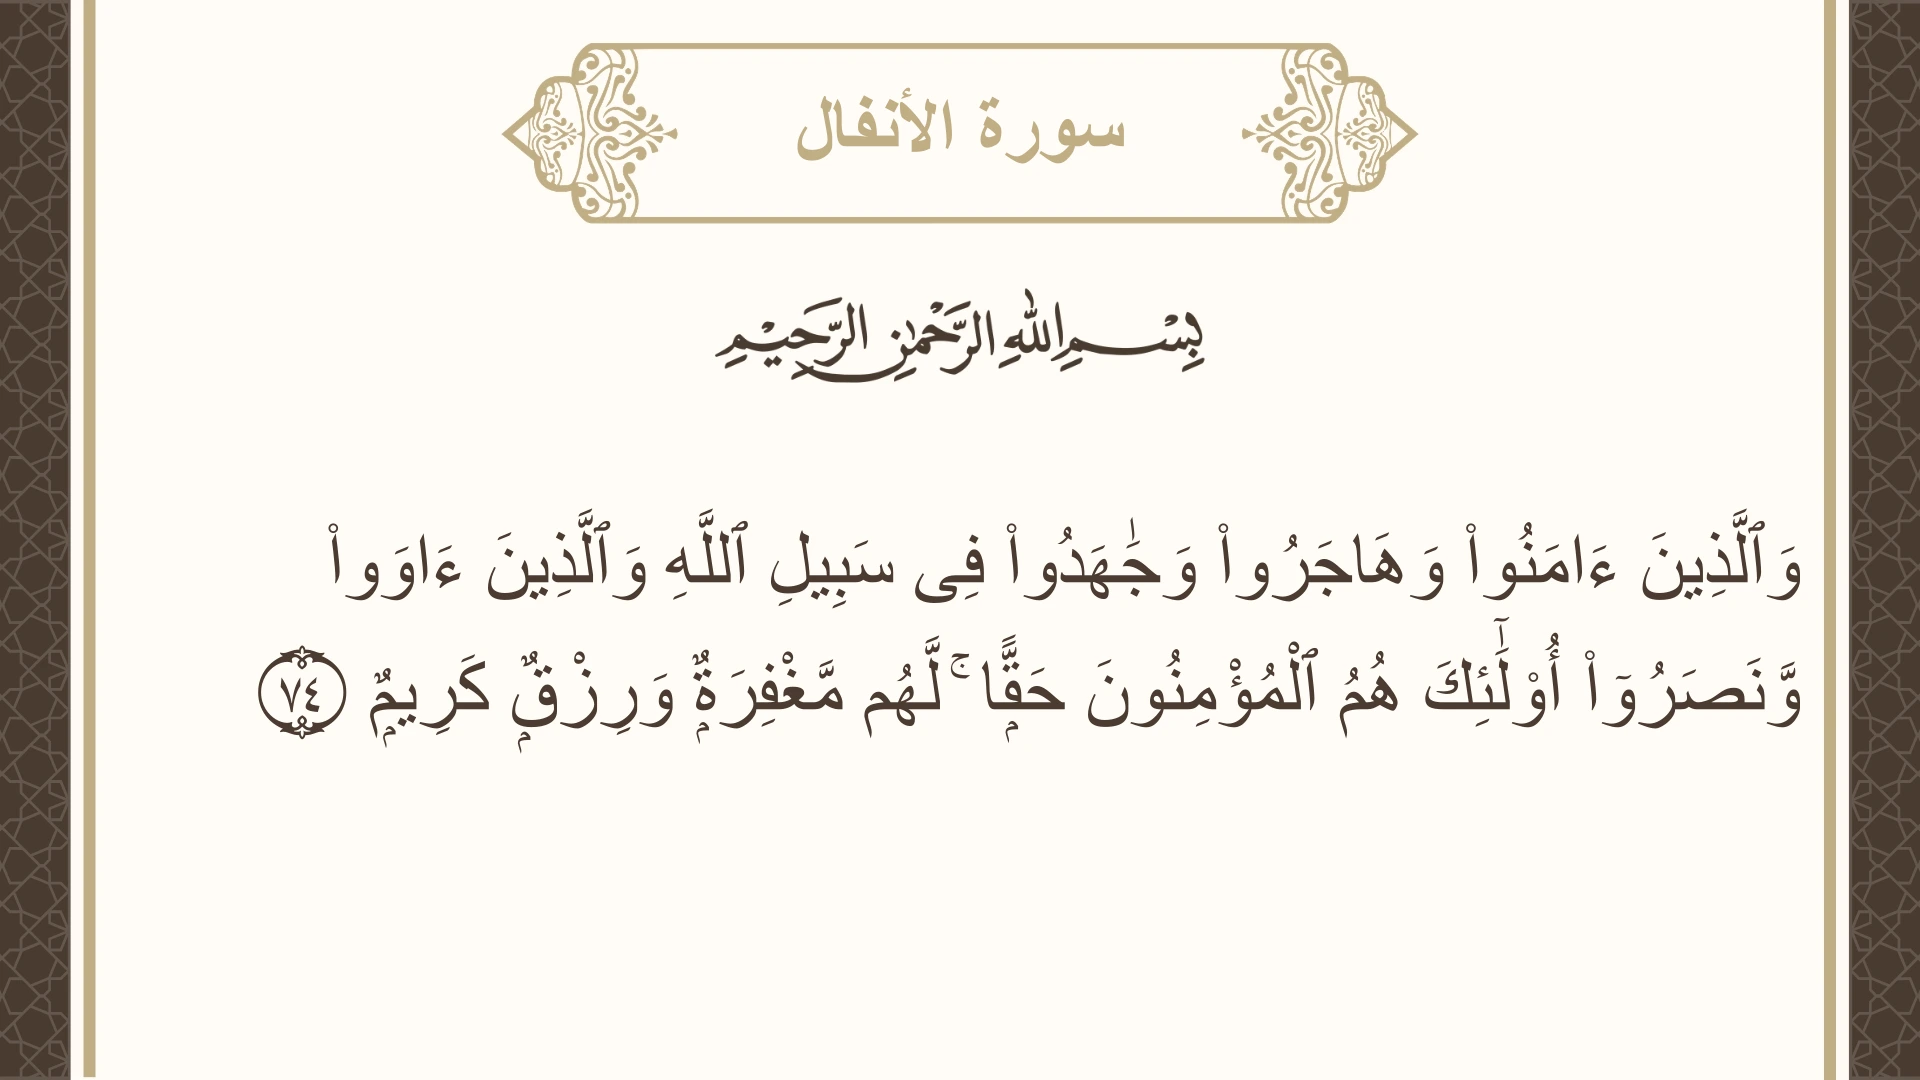 سورة الأنفال
بِسْمِ اللهِ الرَّحْمٰنِ الرَّحِيْمِ
وَٱلَّذِينَ ءَامَنُوا۟ وَهَاجَرُوا۟ وَجَٰهَدُوا۟ فِى سَبِيلِ ٱللَّهِ وَٱلَّذِينَ ءَاوَوا۟
وَّنَصَرُوٓا۟ أُو۟لَٰٓئِكَ هُمُ ٱلْمُؤْمِنُونَ حَقًّۭا ۚ لَّهُم مَّغْفِرَةٌۭ وَرِزْقٌۭ كَرِيمٌۭ ٧٤